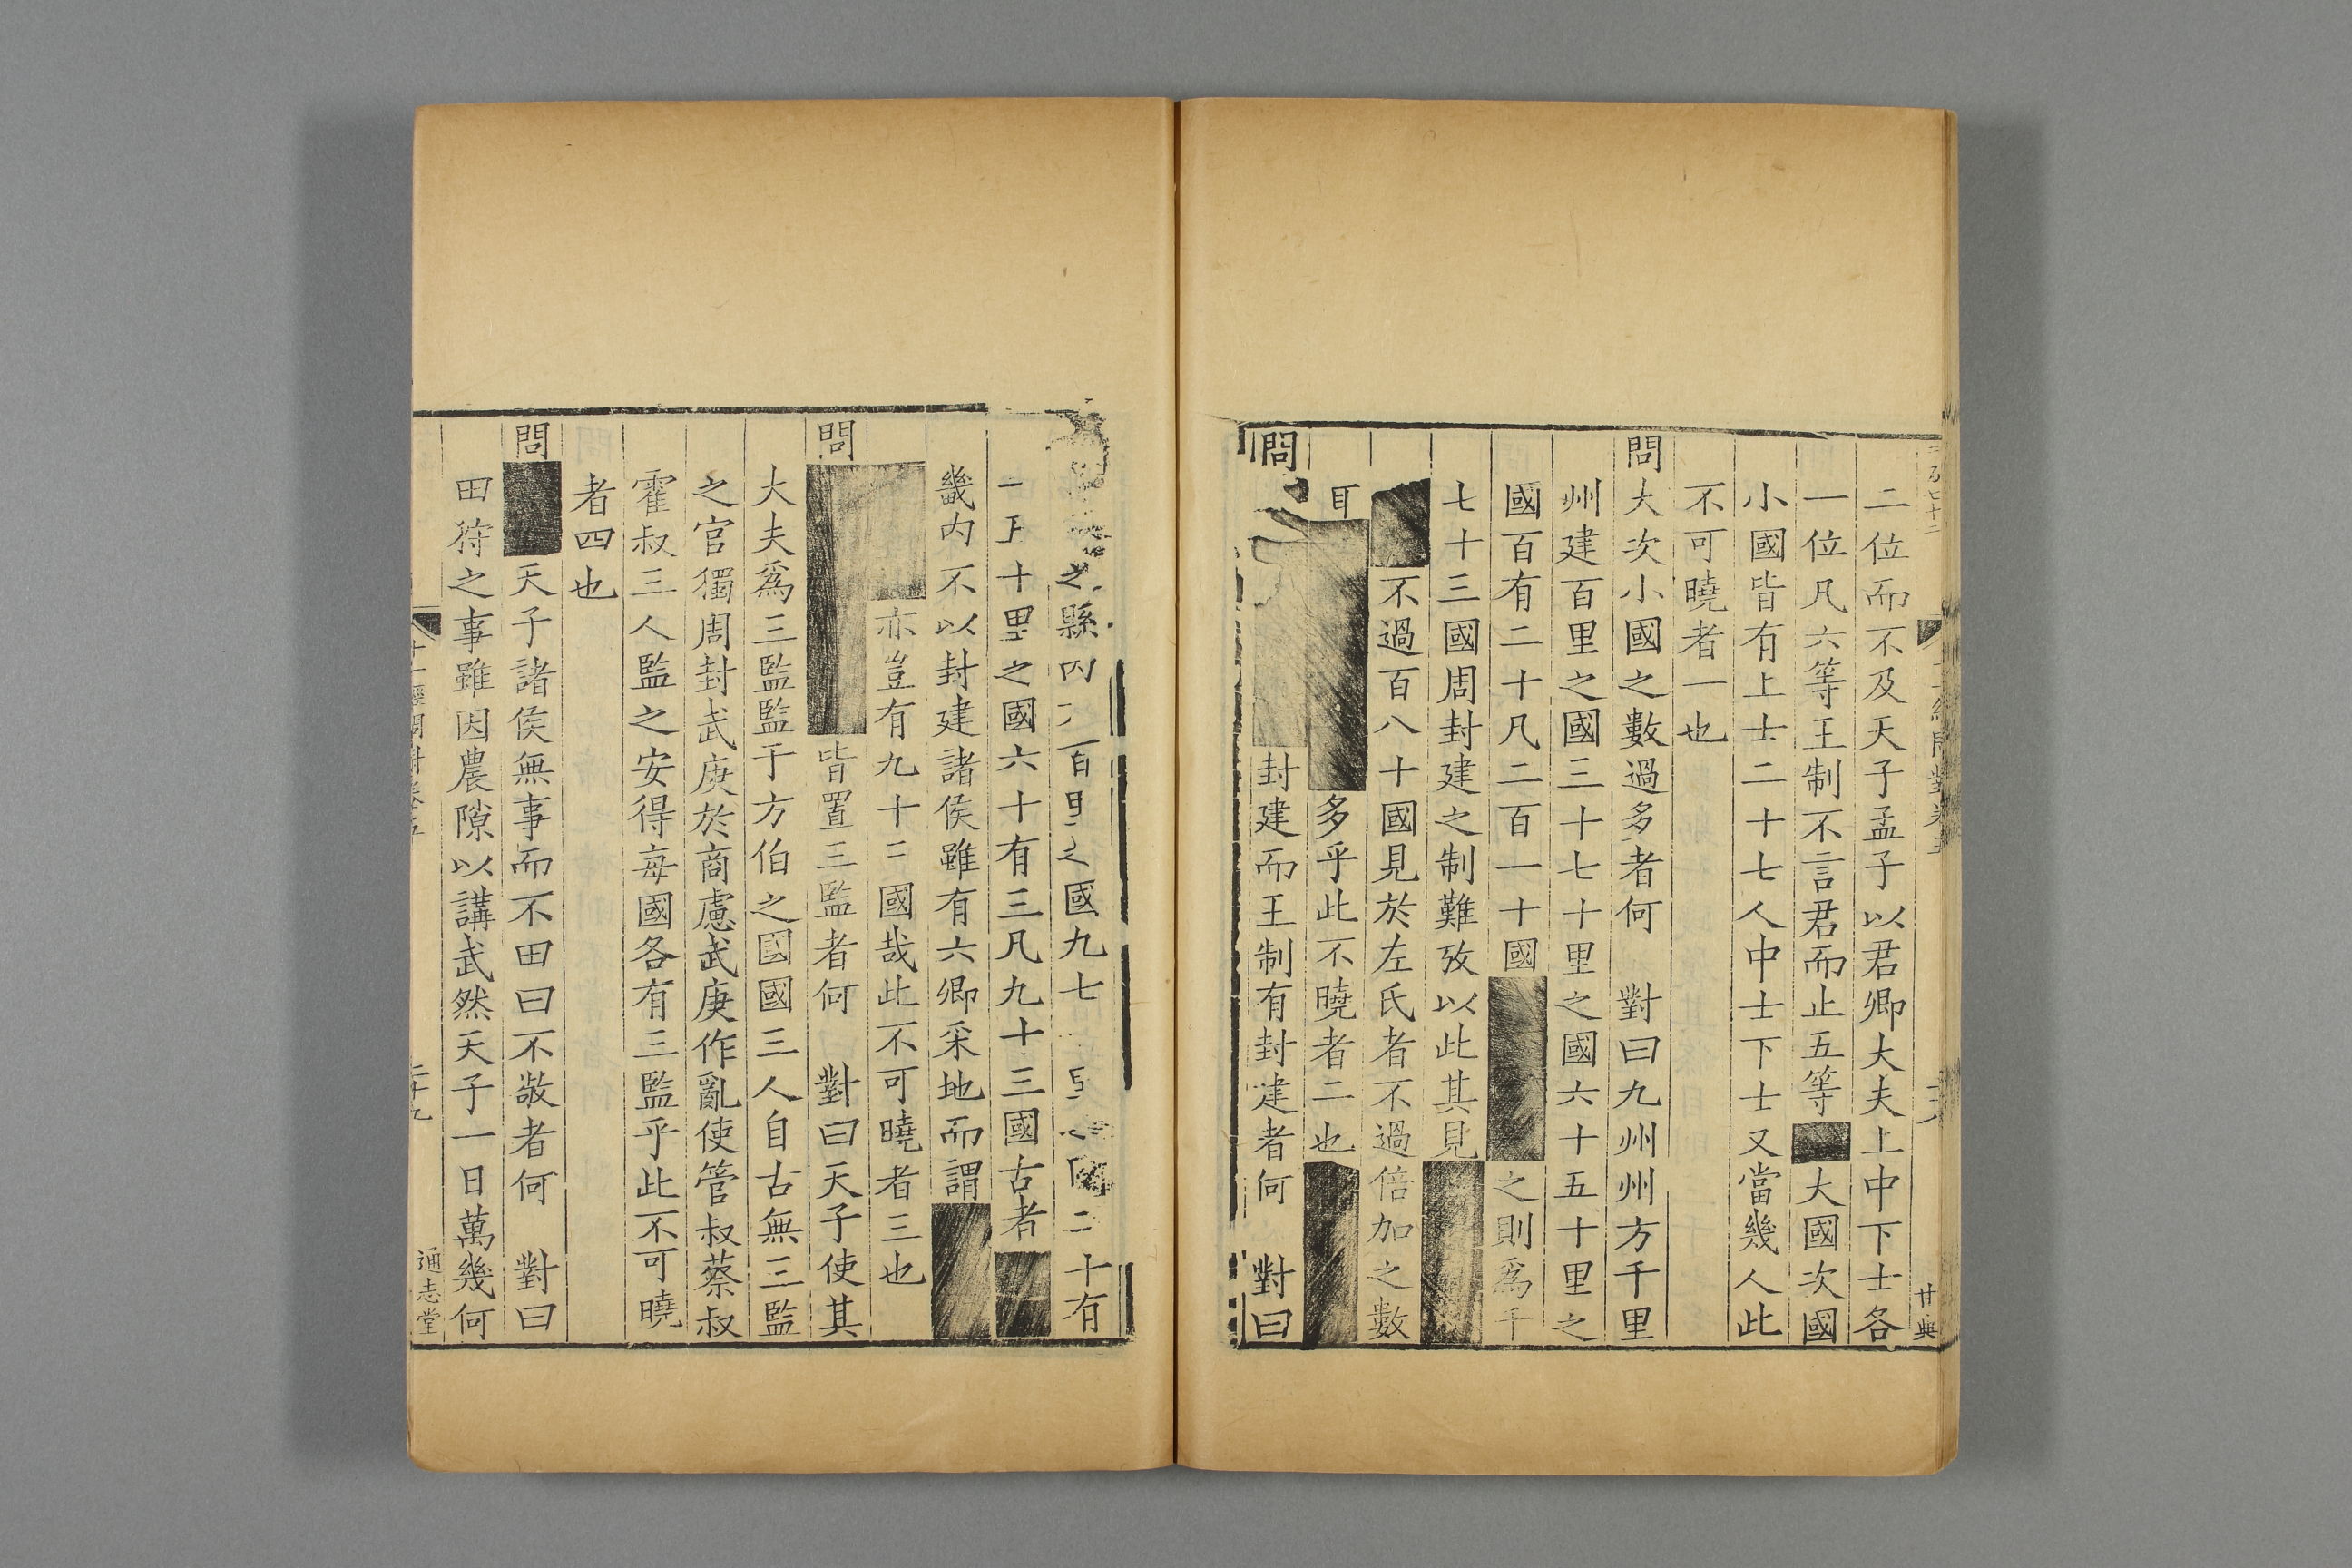 二位而不及天子孟子以君卿大夫上中下士各
一位凡六等王制不言君而止五等大國次國
小國皆有上士二十七人中士下士又當幾人此
不可曉者一也
問大次小國之數過多者何　對曰九州州方千里
州建百里之國三十七十里之國六十五十里之
國百有二十凡二百一十國之則爲千
七十三國周封建之制難攷以此其見
不過百八十國見於左氏者不過倍加之數
耳多乎此不曉者二也
問封建而王制有封建者何　對曰
之縣內百里之國九七十有
十里之國六十有三凡九十三國古者
畿内不以封建諸侯雖有六卿采地而謂
亦豈有九十二國哉此不可曉者三也
問皆置三監者何　對曰天子使其
大夫爲三監監于方伯之國國三人自古無三監
之官獨周封武庚於商慮武庚作亂使管叔蔡叔
霍叔三人監之安得每國各有三監乎此不可曉
者四也
問天子諸侯無事而不田曰不敬者何　對曰
田狩之事雖因農隙以講武然天子一日萬幾何
通志堂